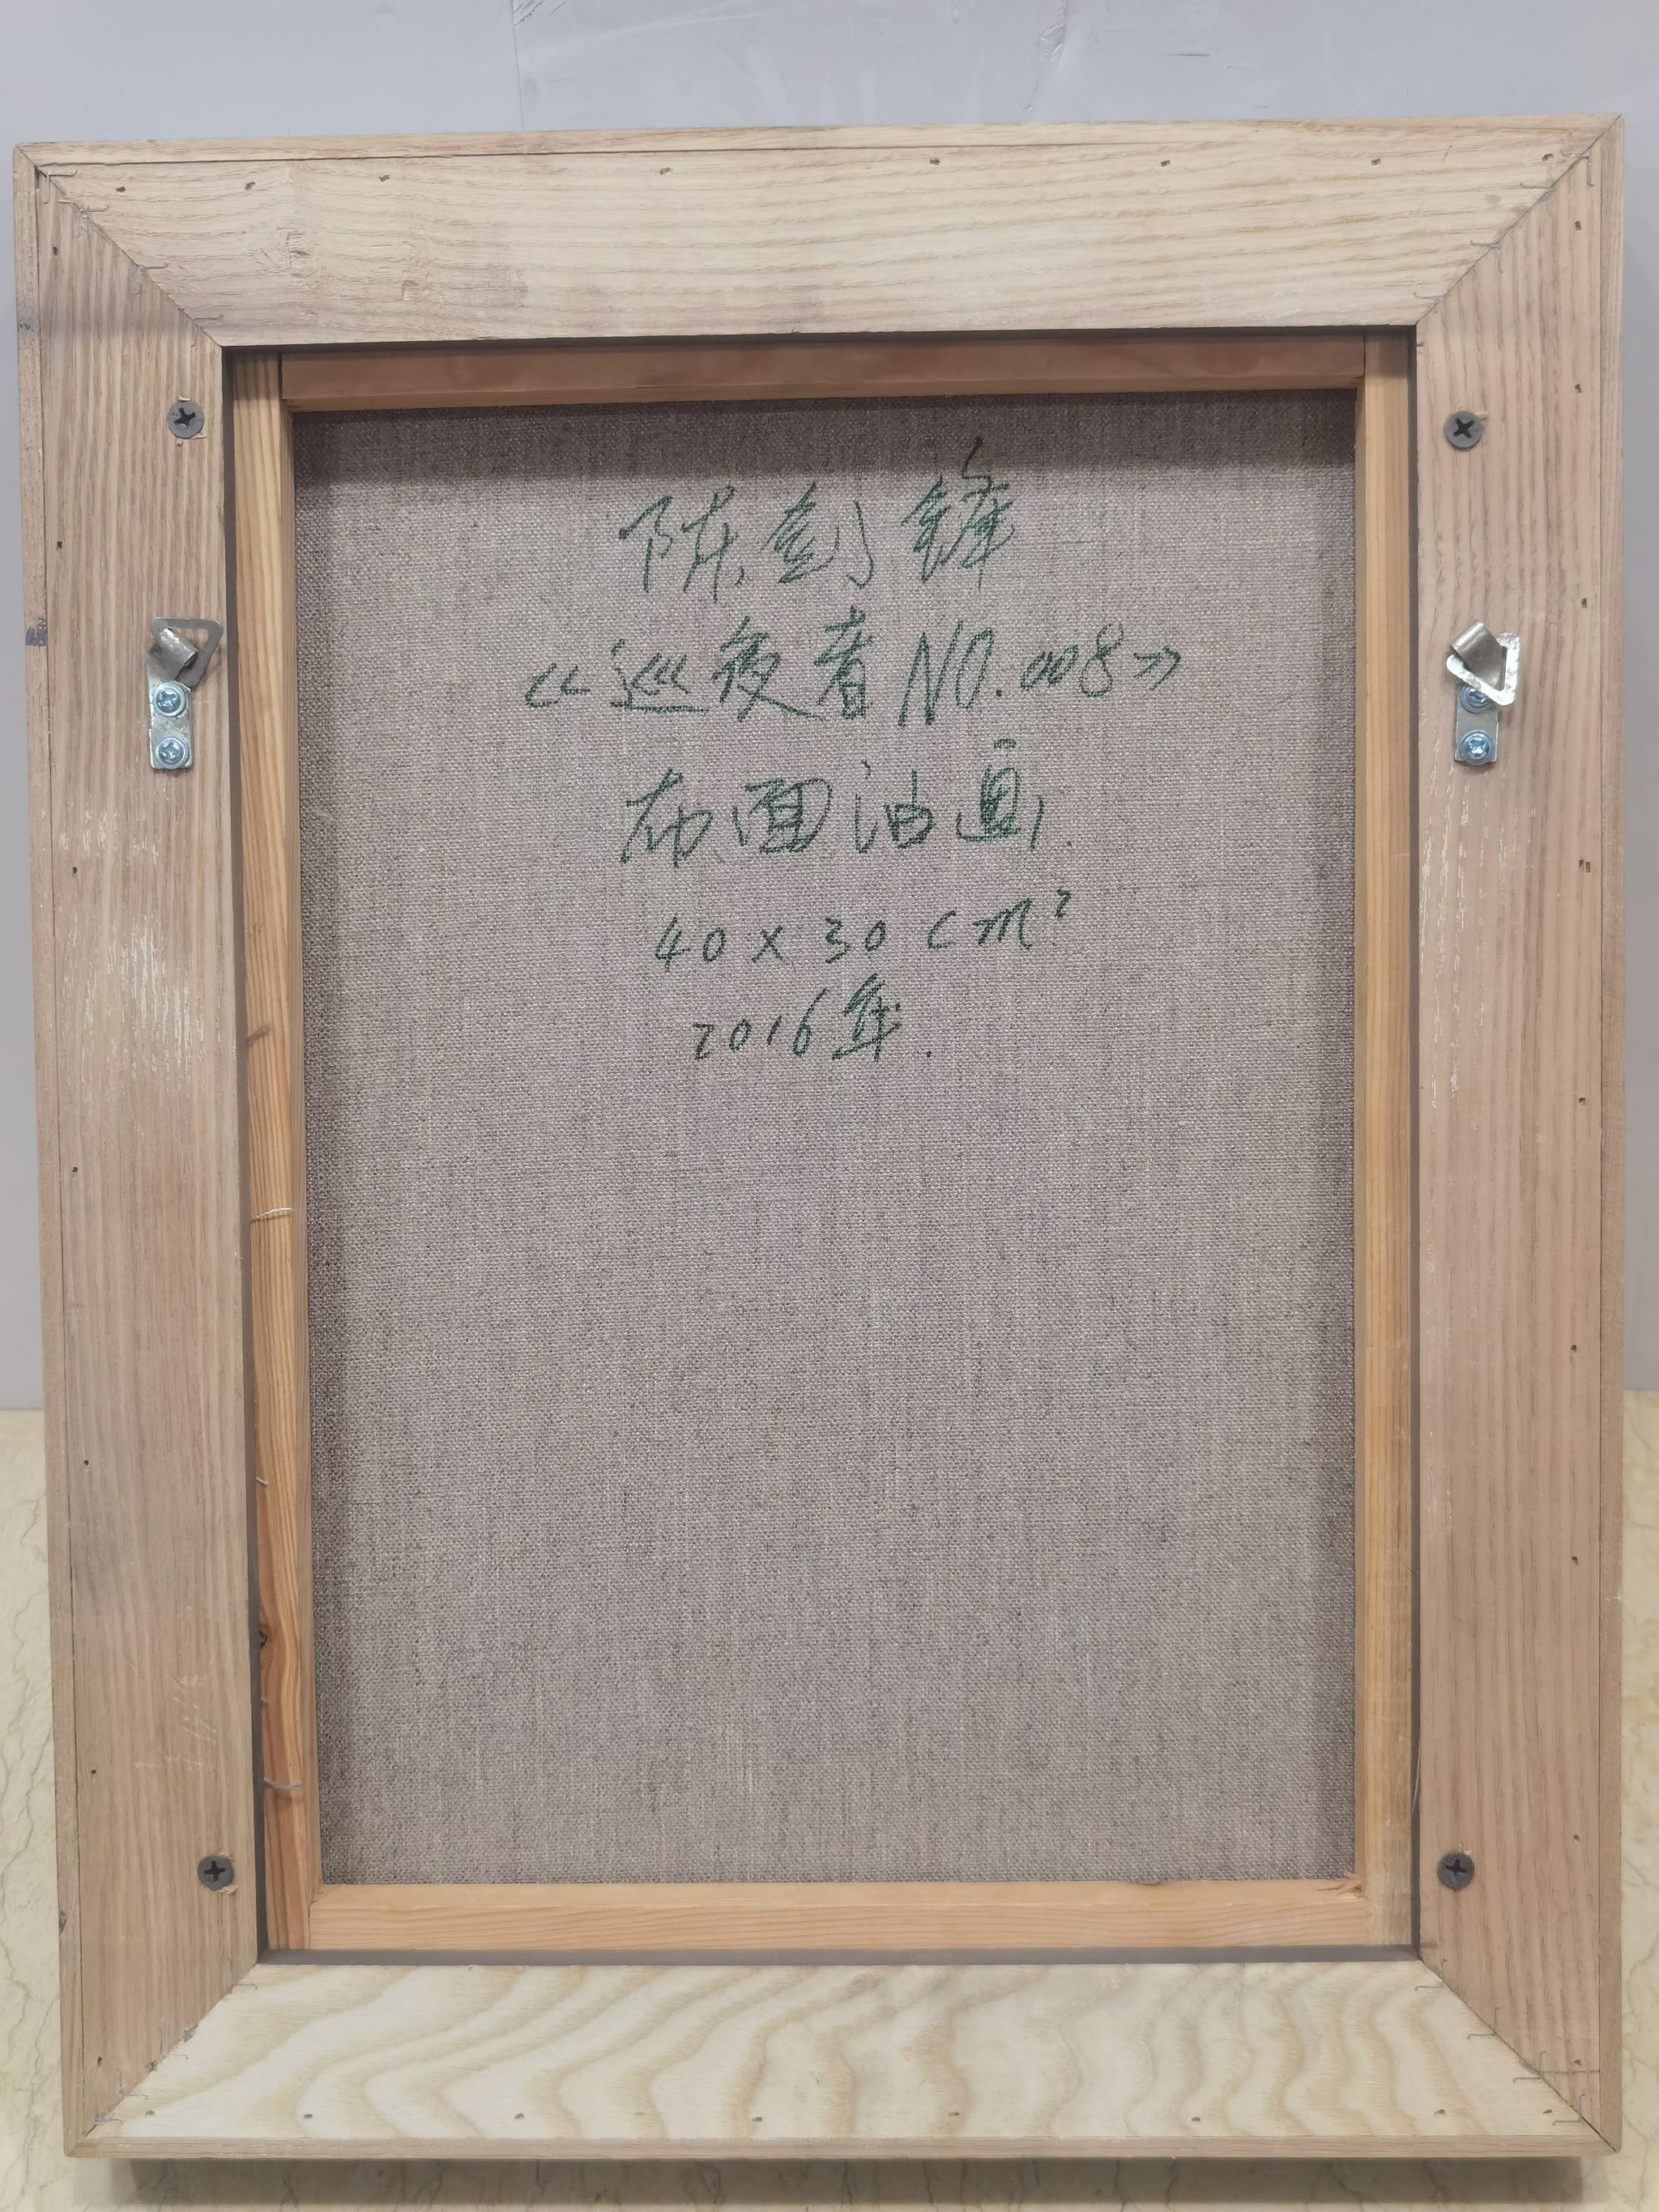 陈剑锋
《巡夜者NO.008》
布面油画
40x30cm²
2016年.